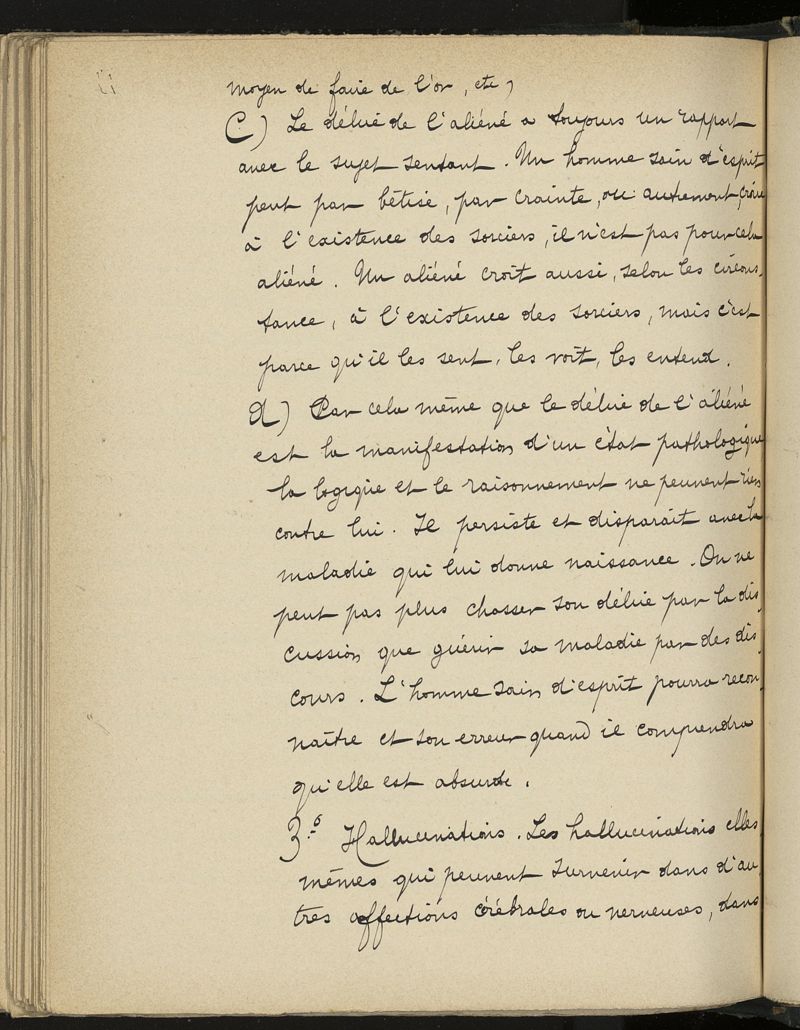 moyen de faire de l'or, etc)
C) Le délire de l'aliéné a toujours un rapport
avec le sujet sentant. Un homme sain d'esprit
peut par bêtise, par crainte, ou autrement, croire
à l'existence des sorciers, il n'est pas pour cela
aliéné. Un aliéné croit aussi, selon les circons-
tance, à l'existence des sorciers, mais c'est
parce qu'il les sent, les voit, les entend.
d) Par cela même que le délire de l'aliéné
est la manifestation d'un état pathologique
la logique et le raisonnement ne peuvent rien
contre lui. Il persiste et disparait avec la
maladie qui lui donne naissance. On ne
peut pas plus chasser son délire par la dis-
cussion que guérir sa maladie par des dis-
cours. L'homme sain d'esprit pourra recon-
naître et son erreur quand il comprendra
qu'elle est absurde.
3º Hallucinations. Les hallucinations elles
mêmes qui peuvent survenir dans d'au-
tres affections cérébrales ou nerveuses, dans